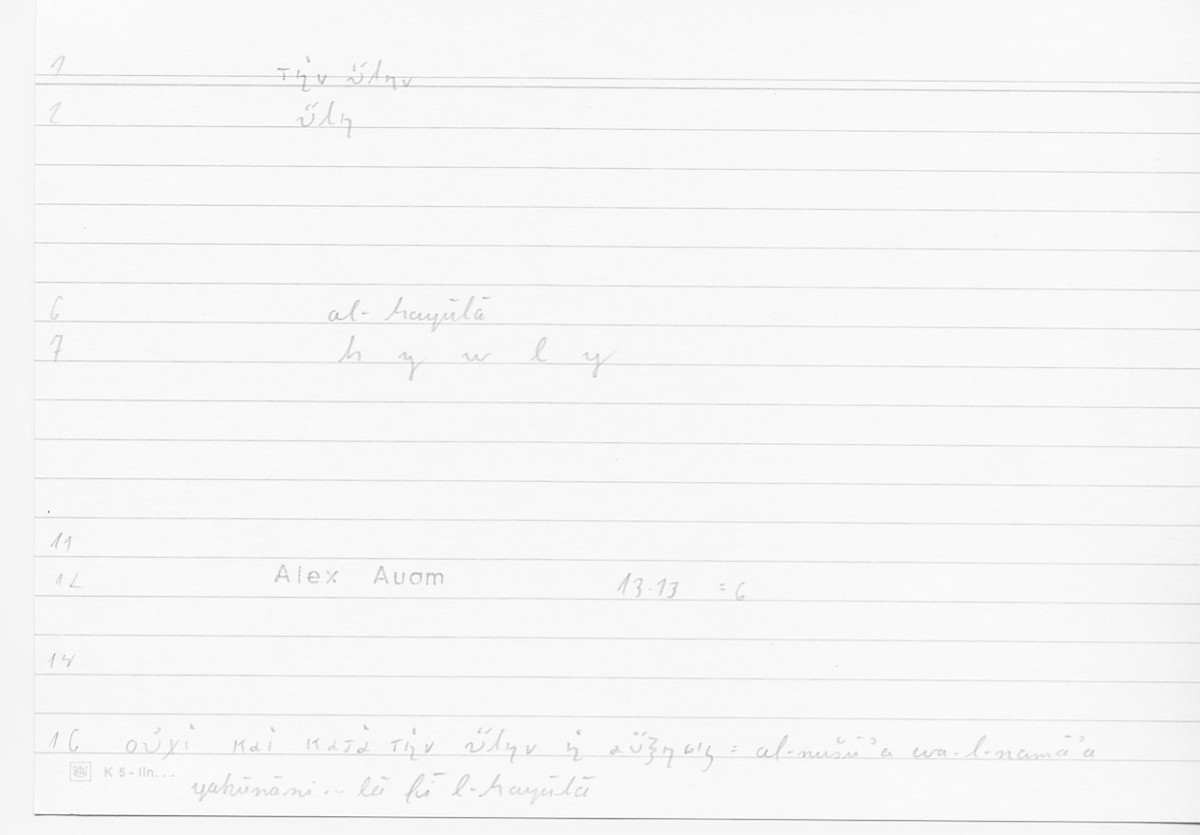 1 τὴν ὕλην
2 ὕλη
6 al-hayūlā
7 h y w l y
11
12 Alex Auom 13.13 = 6
14
16 οὐχὶ καὶ κατὰ τὴν ὕλην ἡ αὔξησις = al-nušūʾa wa-l-namāʾa
K 5-lin...
yakūnāni... lā fī l-hayūlā